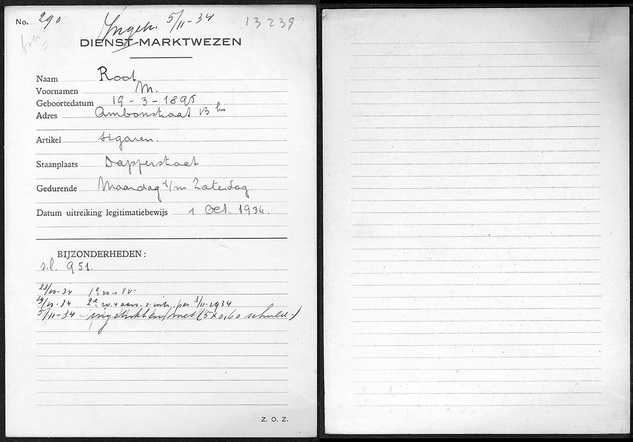 No. 290 Ingetr. 5/11-34 13239
DIENST MARKTWEZEN
Naam Root
Voornamen M.
Geboortedatum 19-3-1895
Adres Ambonstraat 13 hs
Artikel sigaren.
Staanplaats Dapperstraat
Gedurende Maandag t/m Zaterdag
Datum uitreiking legitimatiebewijs 1 Oct. 1934.
BIJZONDERHEDEN:
s.l. 951.
5/11-34 ingetrokken met (5 x 0,60 schuld)
Z. O. Z.